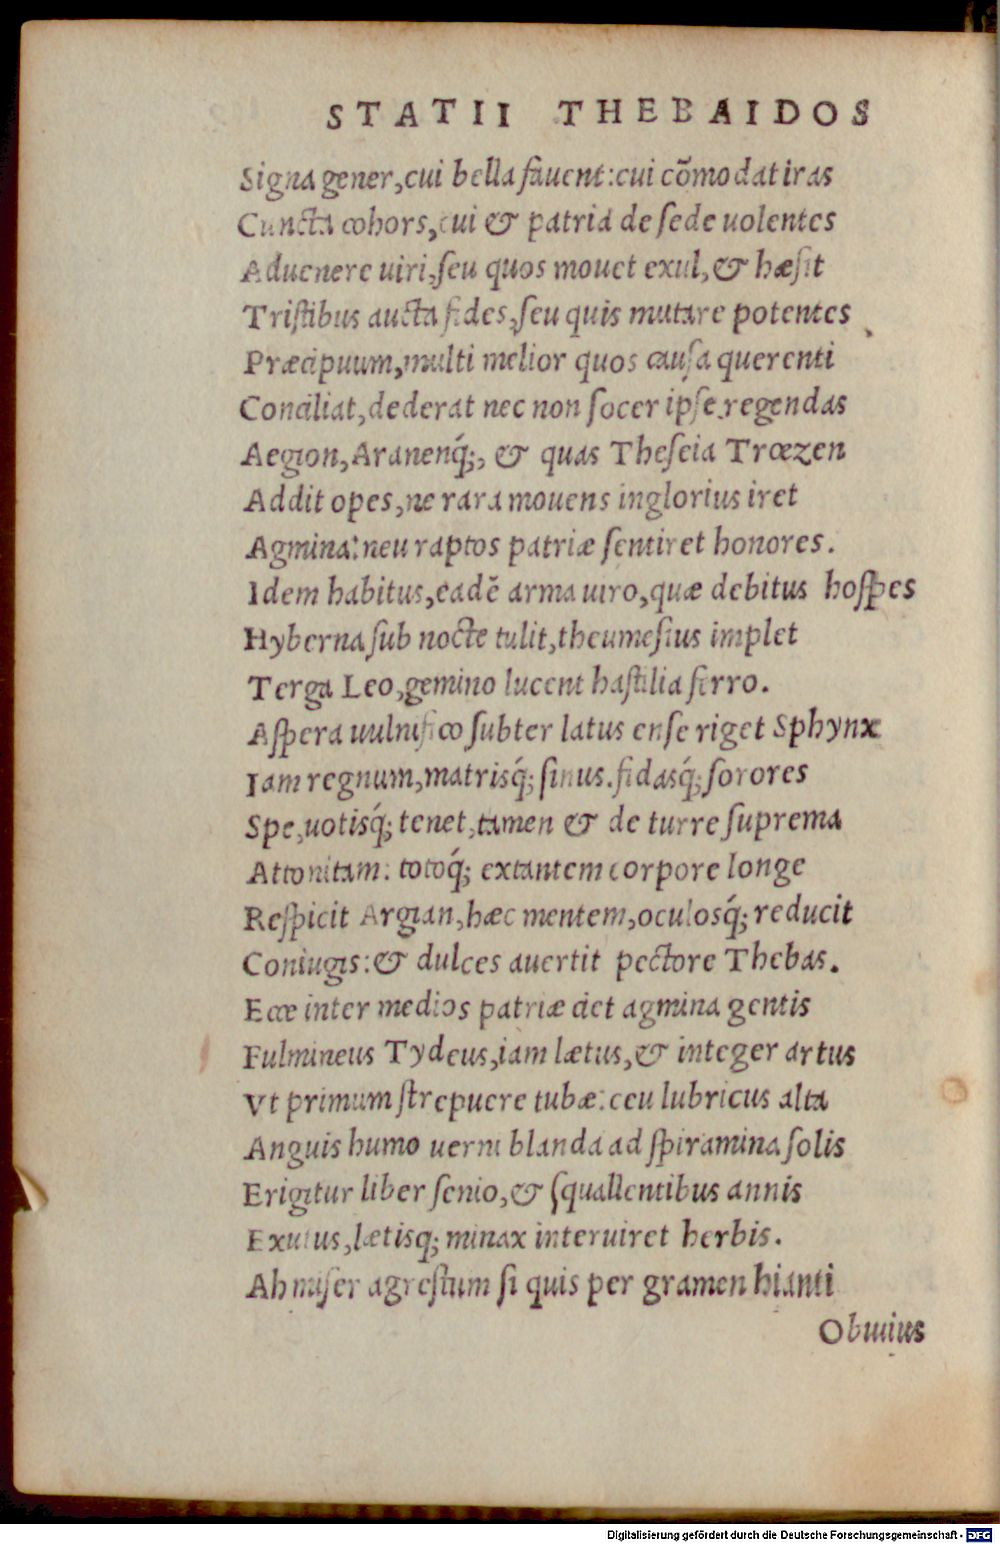 STATII THEBAIDOS
Signa gener,cui bella fauent:cui cõmodat iras
Cuncta cohors,cui & patria de sede uolentes
Aduenere uiri,seu quos mouet exul,& hæsit
Tristibus aucta fides,seu quis mutare potentes
Præcipuum,multi melior quos causa querenti
Conciliat,dederat nec non socer ipse regendas
Aegion,Aranenq́;, & quas Theseia Trœzen
Addit opes,ne rara mouens inglorius iret
Agmina:neu raptos patriæ sentiret honores.
Idem habitus,eadẽ arma uiro,quæ debitus hospes
Hyberna sub nocte tulit,theumesius implet
Terga Leo,gemino lucent hastilia ferro.
Aspera uulnifico subter latus ense riget Sphynx
Iam regnum,matrisq́; sinus.fidasq́; sorores
Spe,uotisq́; tenet,tamen & de turre suprema
Attonitam: totoq́; extantem corpore longe
Respicit Argian,hæc mentem,oculosq́; reducit
Coniugis:& dulces auertit pectore Thebas.
Ecce inter medios patriæ ciet agmina gentis
Fulmineus Tydeus,iam lætus,& integer artus
Vt primum strepuere tubæ:ceu lubricus alta
Anguis humo uerni blanda ad spiramina solis
Erigitur liber senio,& squallentibus annis
Exutus,lætisq; minax interuiret herbis.
Ah miser agrestum si quis per gramen hianti
Obuius
Digitalisierung gefördert durch die Deutsche Forschungsgemeinschaft - DFG